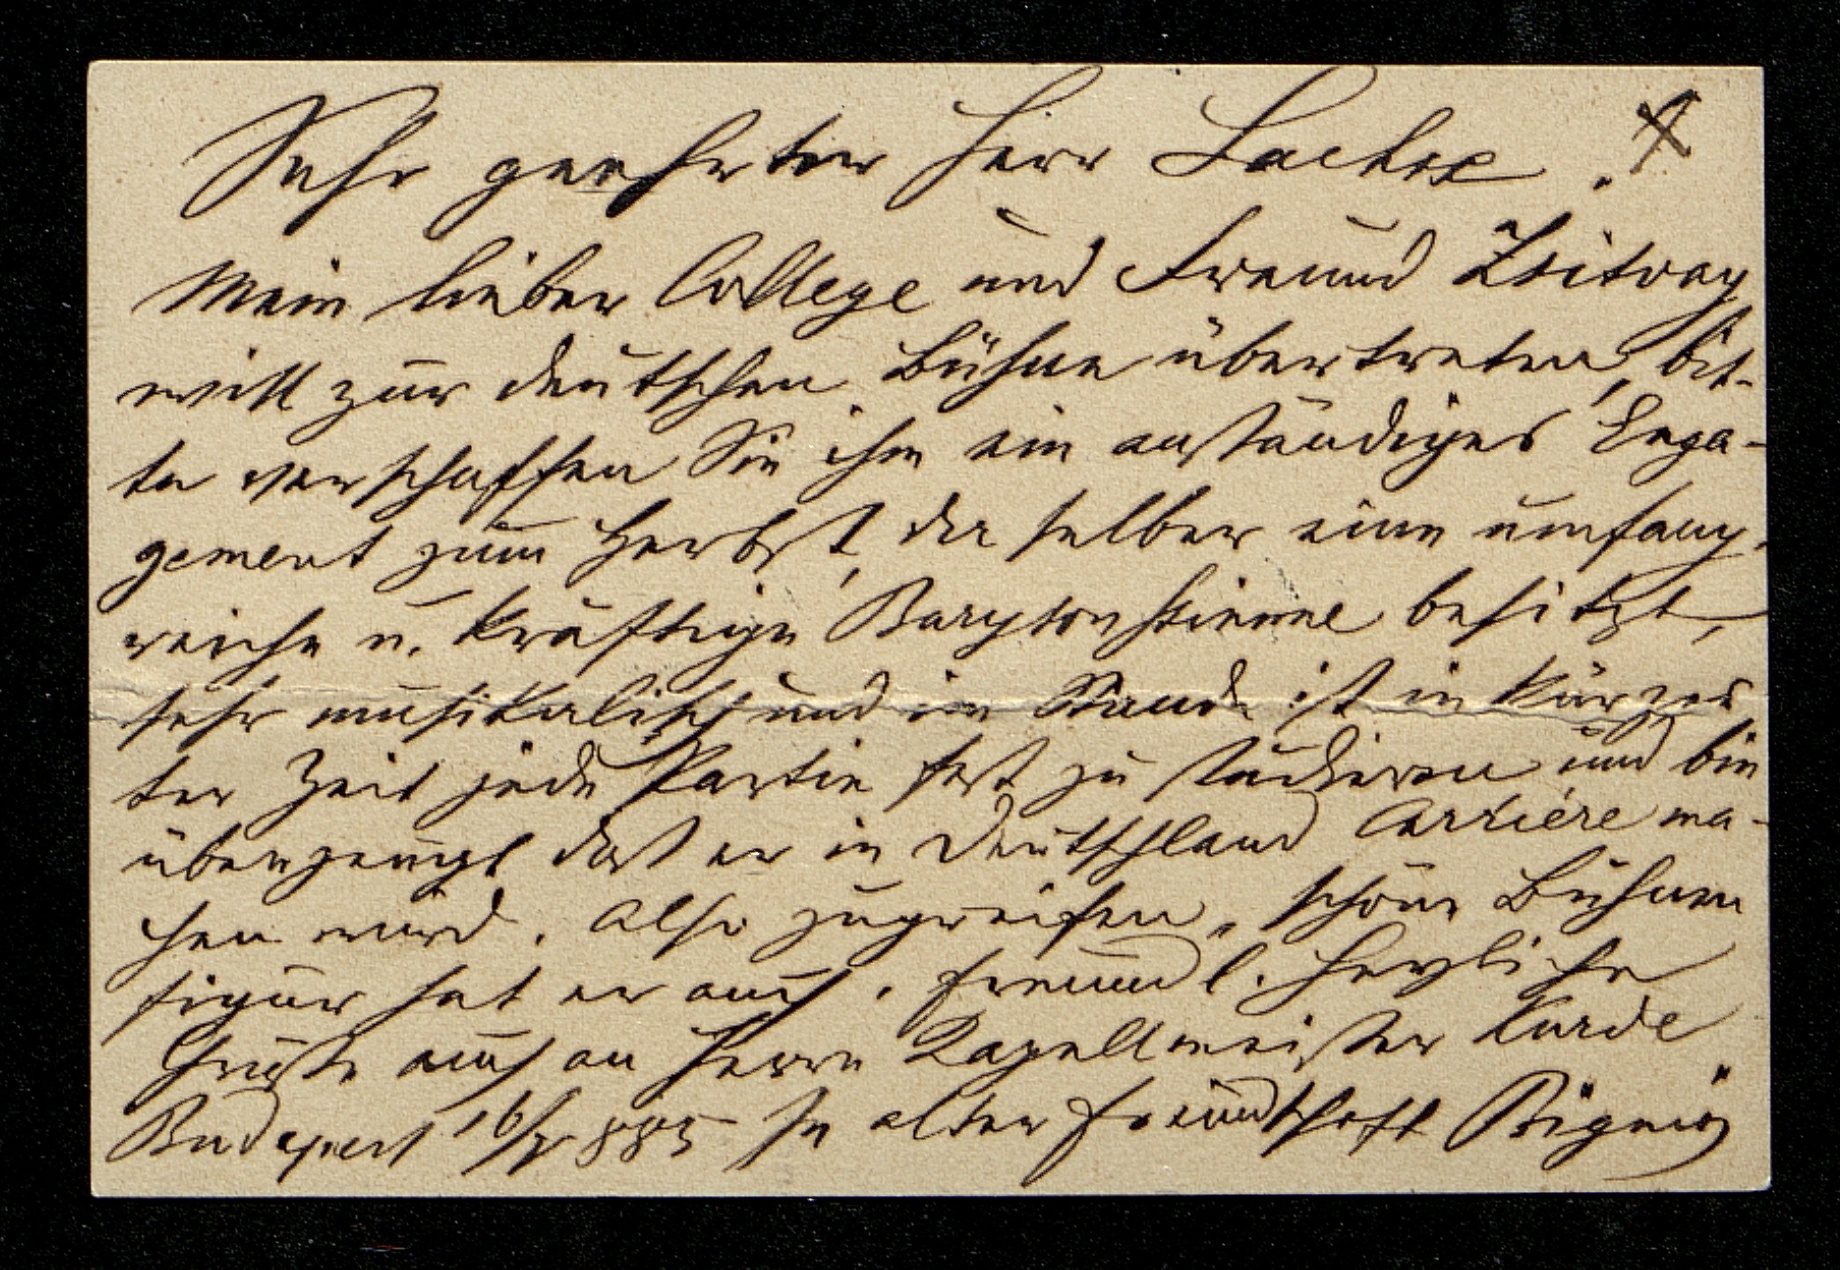 Sehr geehrter Herr
Mein lieber College und Freund Zsitvay
will zur deutschen Bühne übertreten, bit-
te verschaffen Sie ihm ein anständiges Enga-
gement zum Herbst, da selber eine umfang-
reiche u. kräftige Barytonstimme besitzt,
sehr musikalisch und im Stande ist in kürzes
ter Zeit jede Partie fest zu studieren und bin
überzeugt daß er in Deutschland Carriére ma-
chen wird. Also zugreifen, schöne Bühnen
figur hat er auch. Freundl. herzliche
Grüße auch an Herrn Kapellmeister
Budapest 885 In alter Freundschaft Bignio